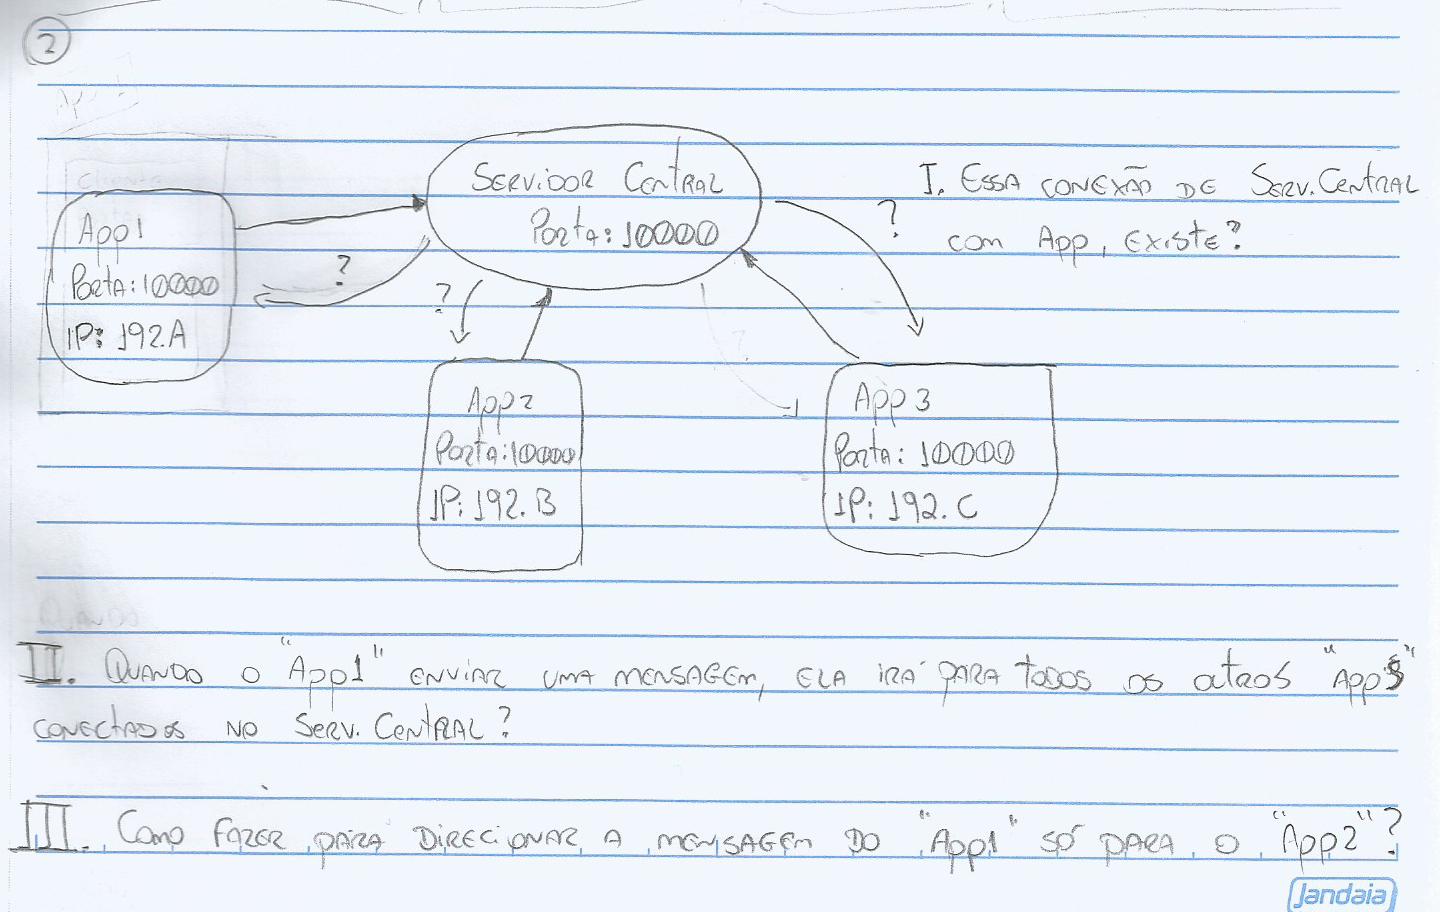 2
Servidor Central
Porta: 10000
I. Essa conexão de Serv. Central
com App, existe?
App1
Porta: 10000
IP: 192.A
?
?
?
App2
Porta: 10000
IP: 192.B
App3
Porta: 10000
IP: 192.C
II. Quando o "App1" enviar uma mensagem, ela irá para todos os outros "App's"
conectados no Serv. Central?
III. Como fazer para direcionar a mensagem do "App1" só para o "App2"?
Jandaia